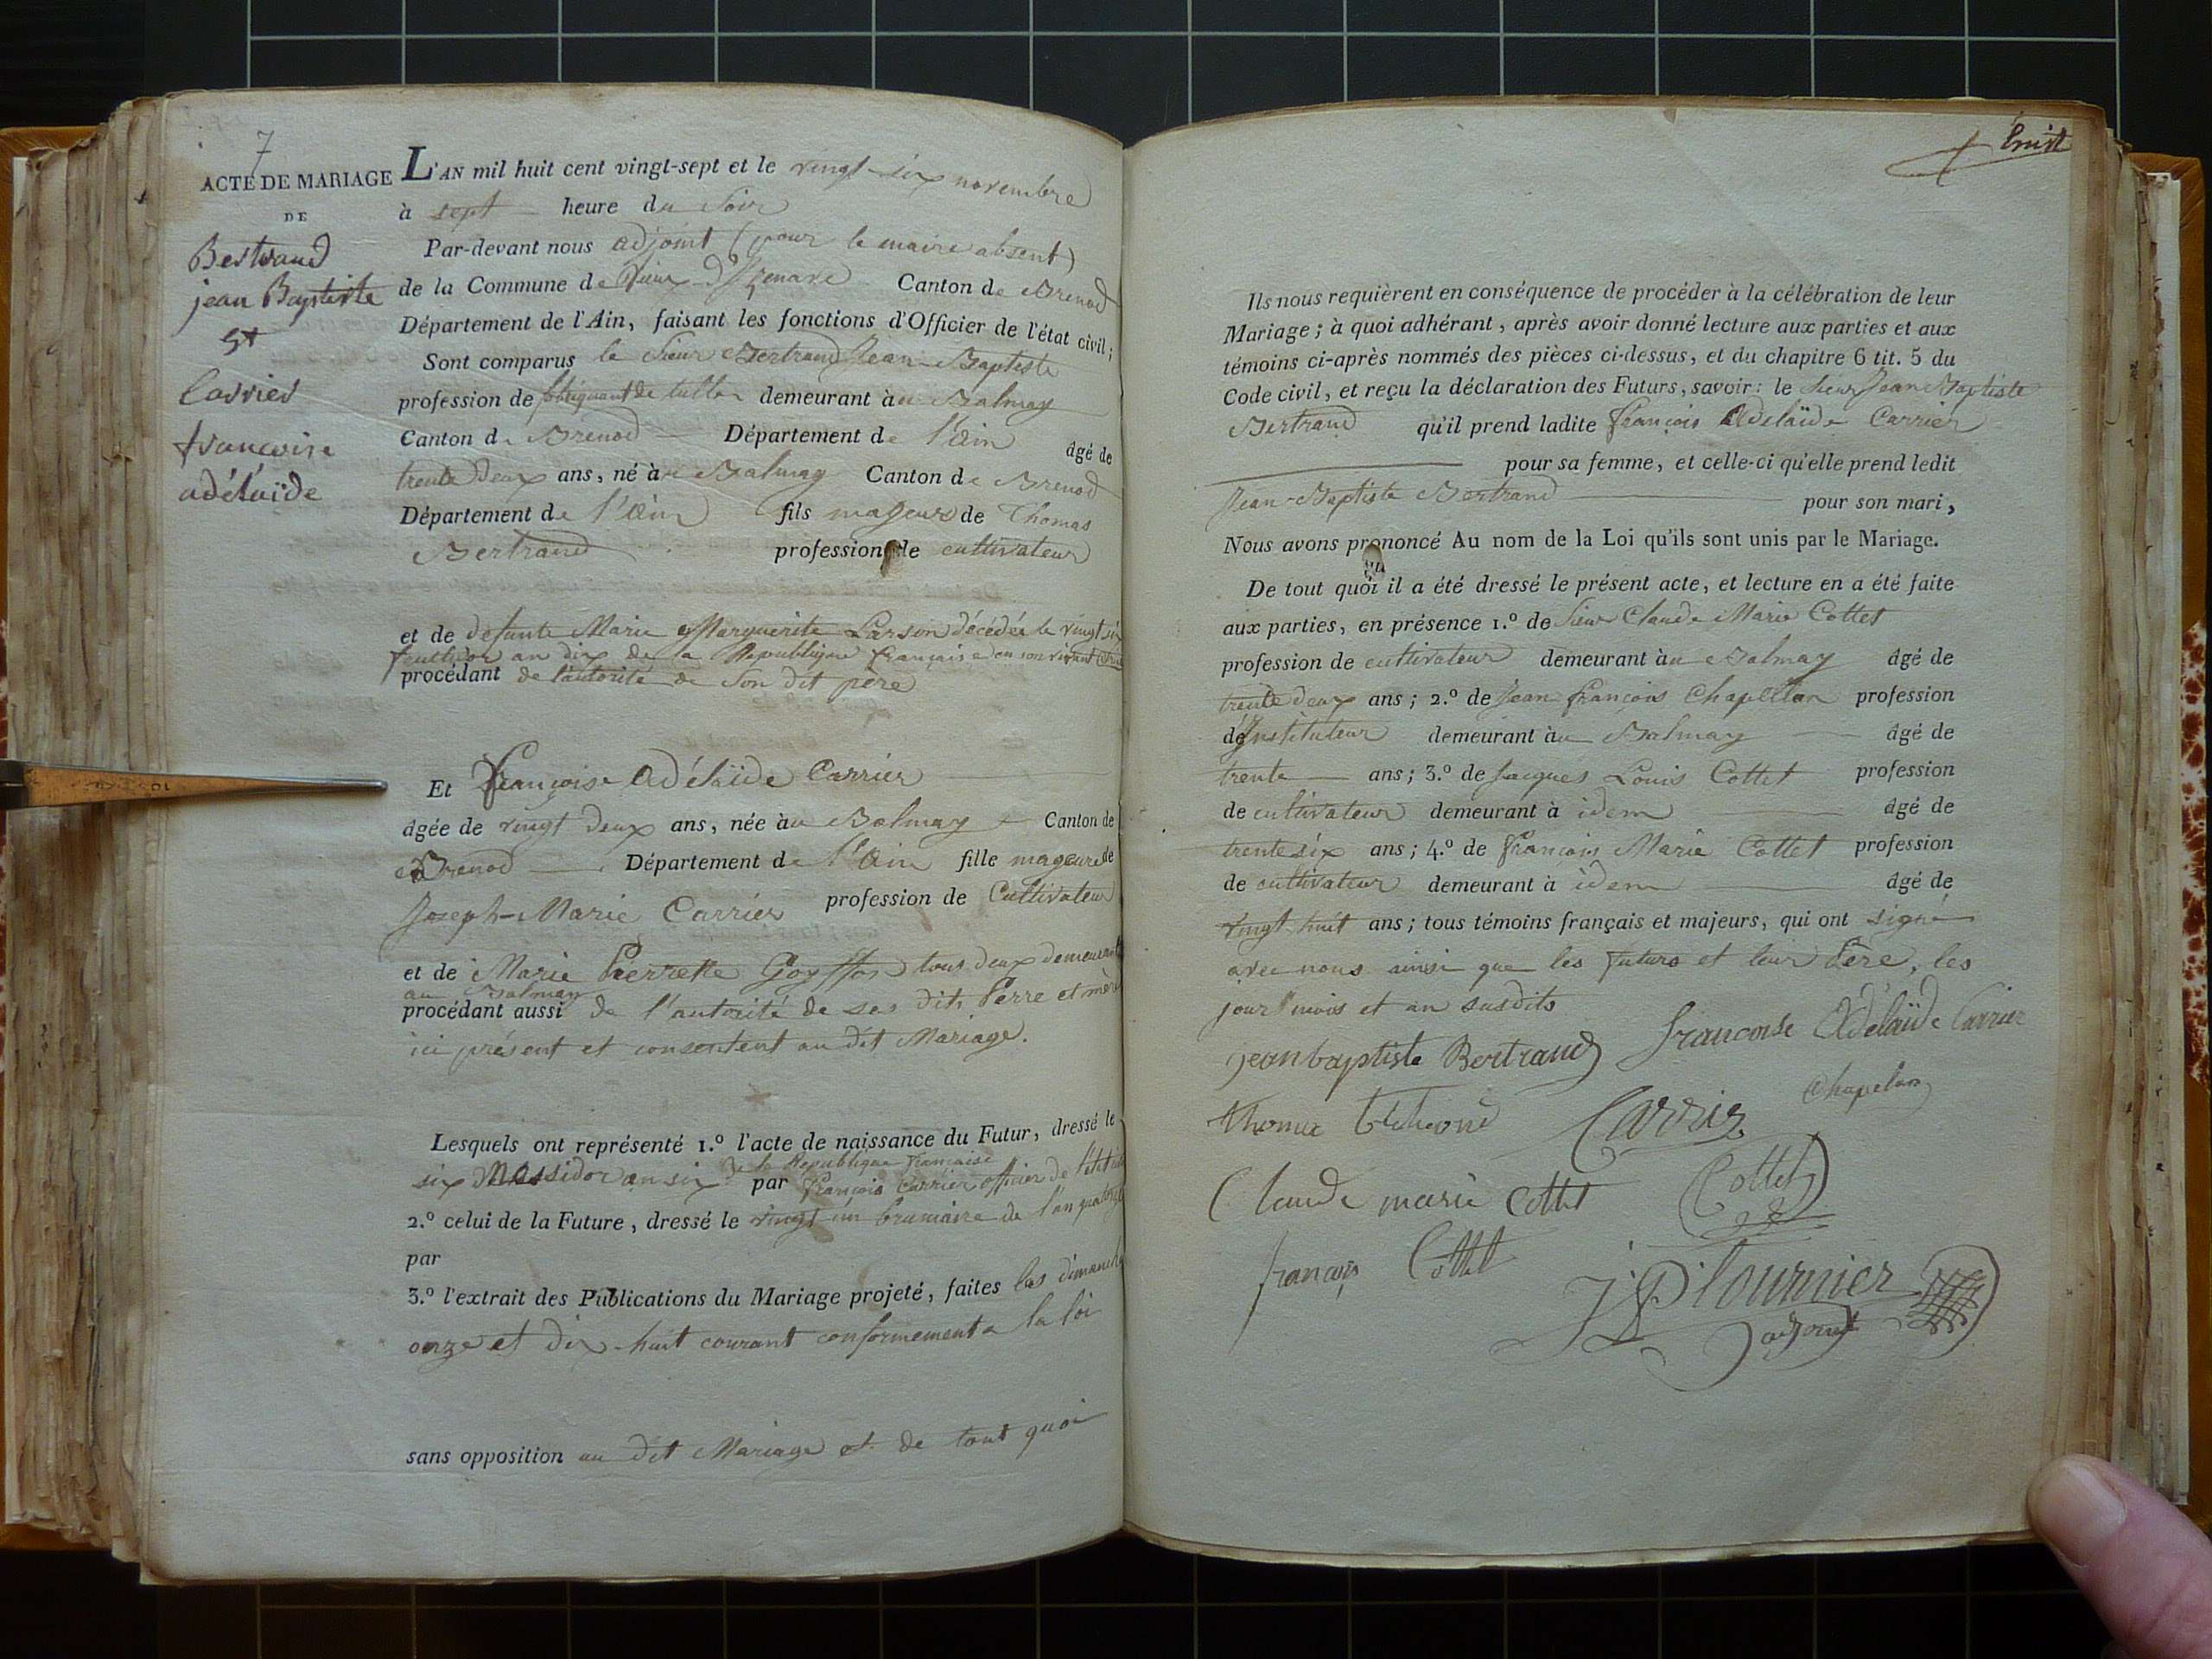 7
ACTE DE MARIAGE
DE
Bertrand
jean Baptiste
et
Carrier
françoise
adélaïde
L'AN mil huit cent vingt-sept et le vingt-six novembre
à sept heure du Soir
Par-devant nous adjoint (pour le maire absent)
de la Commune de Vieux d'Izenave Canton de Brenod
Département de l'Ain, faisant les fonctions d'Officier de l'état civil;
Sont comparus le Sieur Bertrand Jean-Baptiste
profession de fabriquant de tulle demeurant àu Balmay
Canton de Brenod Département de l'ain âgé de
trente deux ans, né àu Balmay Canton de Brenod
Département de l'ain fils mageur de Thomas
Bertrand profession de cultivateur
et de defunte Marie Marguerite Larson décédée le vingt six
fructidor an dix de la Republique française en son vivant
procédant de l'autorité de Son dit père
Et françoise Adélaïde Carrier
âgée de vingt deux ans, née àu Balmay Canton de
Brenod Département de l'Ain fille mageure de
Joseph-Marie Carrier profession de Cultivateur
et de Marie Pierrette Goyffon tous deux demeurant
au Balmay
procédant aussi de l'autorité de ses dits Perre et mère
ici présent et consentent au dit Mariage.
Lesquels ont représenté 1.º l'acte de naissance du Futur, dressé le
la Republique française
six Messidor an six par françois Carrier officier de l'état
2.º celui de la Future, dressé le vingt un brumaire de l'an quatorze
par
3.º l'extrait des Publications du Mariage projeté, faites les dimanche
onze et dix-huit courant conformement a la loi
sans opposition au dit Mariage et de tout quoi
Ils nous requièrent en conséquence de procéder à la célébration de leur
Mariage; à quoi adhérant, après avoir donné lecture aux parties et aux
témoins ci-après nommés des pièces ci-dessus, et du chapitre 6 tit. 5 du
Code civil, et reçu la déclaration des Futurs, savoir: le Sieur Jean Baptiste
Bertrand qu'il prend ladite françois Adelaïde Carrier
pour sa femme, et celle-ci qu'elle prend ledit
Jean-Baptiste Bertrand pour son mari,
Nous avons prononcé Au nom de la Loi qu'ils sont unis par le Mariage.
De tout quoi il a été dressé le présent acte, et lecture en a été faite
aux parties, en présence 1.º de Sieur Claude Marie Cottet
profession de cultivateur demeurant àu Balmay âgé de
trente deux ans; 2.º de Jean françois Chapellon profession
de Instituteur demeurant àu Balmay âgé de
trente ans; 3.º de Jacques Louis Cottet profession
de cultivateur demeurant à idem âgé de
trente six ans; 4.º de françois Marie Cottet profession
de cultivateur demeurant à idem âgé de
vingt huit ans; tous témoins français et majeurs, qui ont signé
avec nous ainsi que les futurs et leur Père, les
jour mois et an susdits
jean baptiste Bertrand francoise Adelaïde Carrier
Chapelon
Thomas Carrier
Claude marie Cottet Cottet
françois Cottet
adjoint